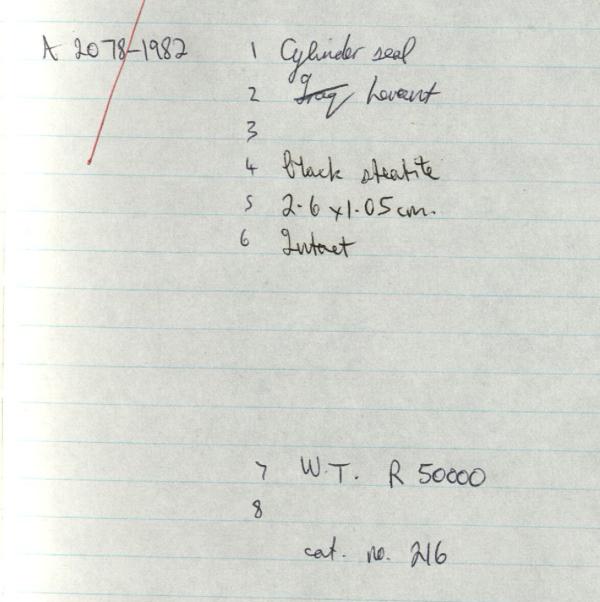 A 2078-1982 1 Cylinder seal
2 Iraq Levant
3
4 black steatite
5 2.6 x 1.05 cm.
6 Intact
7 W.T. R 50000
8
cat. no. 216